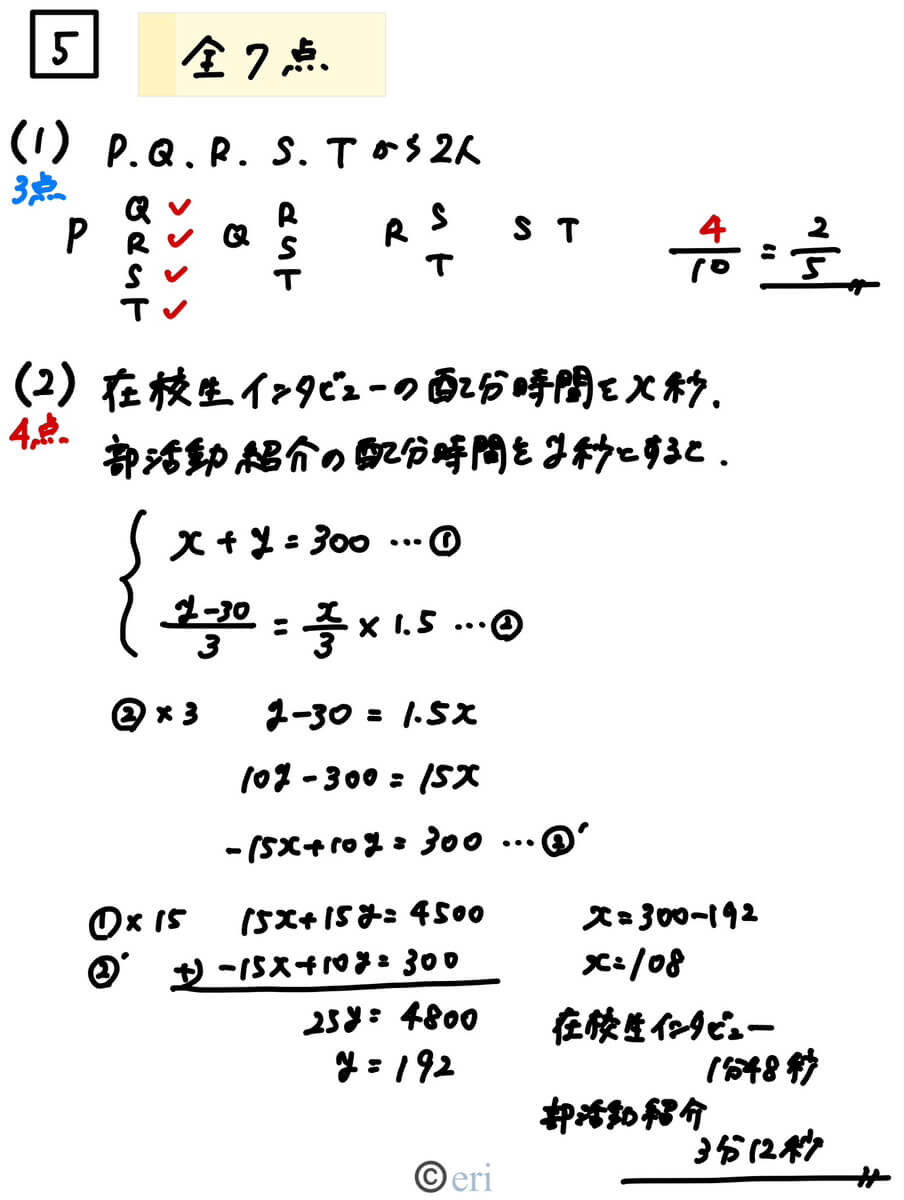 5 全7点
(1) P.Q.R.S.Tから2人
3点
P Q ✓ Q R R S S T 4/10 = 2/5
R ✓ S T
S ✓ T
T ✓
(2) 在校生インタビューの配分時間をx秒.
4点 部活動紹介の配分時間をy秒とすると.
x + y = 300 … ①
(y-30)/3 = x/3 × 1.5 … ②
② × 3 y-30 = 1.5x
10y - 300 = 15x
-15x+10y = 300 … ②′
① × 15 15x+15y = 4500 x = 300-192
②′ +) -15x+10y = 300 x = 108
25y = 4800 在校生インタビュー
y = 192 1分48秒
部活動紹介
3分12秒
© eri